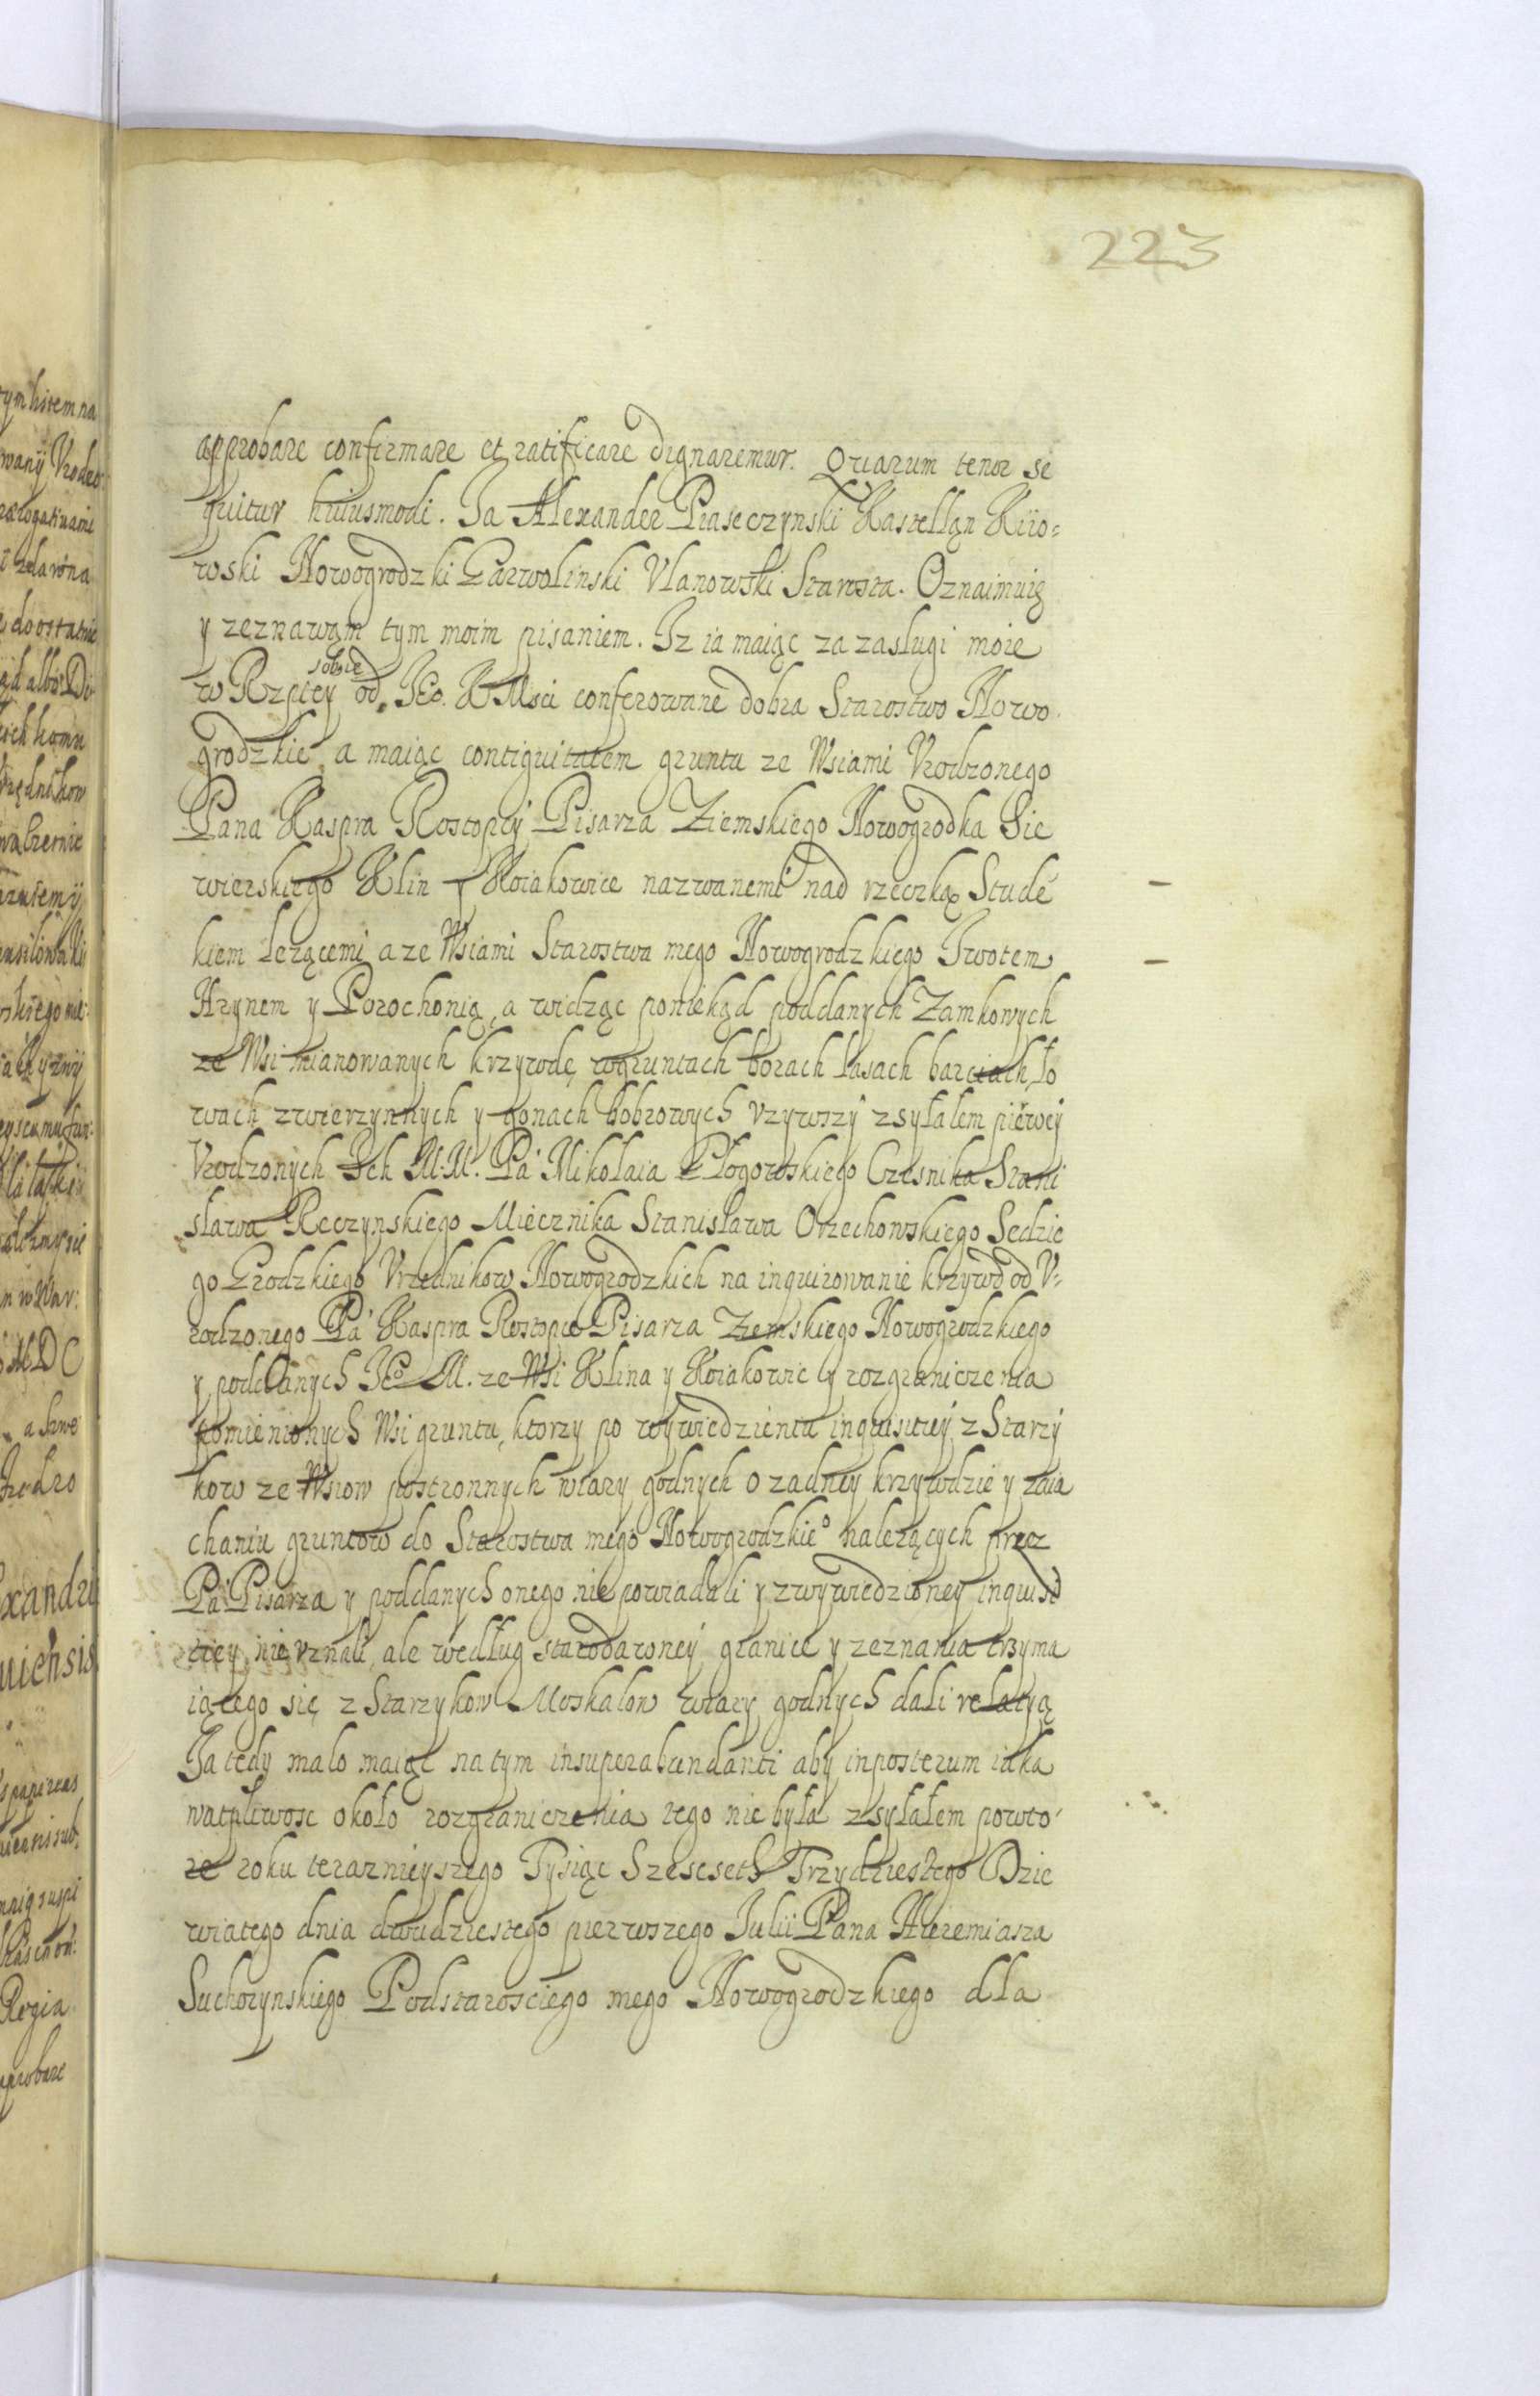 223
approbare confirmare et ratificare dignaremur. Quarum tenor se
quitur huiusmodi. Ja Alexander Piaseczynski Kastelląn Kiio=
wski Nowogrodzki Garwolinski Vlanowski Starosta. Oznaimuię
y zeznawąm tym moim pisaniem. Iz ia maiąc za zaslugi moie
w Rzpltey sobie od Jeo. K Msci conferowane dobra Starostwo Nowo.
grodzkie, a maiąc contiguitatem gruntu ze Wsiami Vrodzonego
Pana Kaspra Rostopczy Pisarza Ziemskiego Nowogrodka Sie
wierskiego Klin y Koiakowice nazwanemi nad rzeczką Stude
kiem lezącemi a ze Wsiami Starostwa mego Nowogrodzkiego Iwotem
Hrynem y Porochonią, a widząc poniekąd poddanych Zamkowych
ze Wsi mianowanych krzywdę, w gruntach borach lasach barciach, ło
wach zwierzynnych y gonach bobrowych vzywszy zsyłalem pierwey
Vrodzonych Ich M.M. Pa Mikolaia Głogowskiego Czesnika Stani
sława Reczynskiego Miecznika Stanisława Orzechowskiego Sedzie
go Grodzkiego Vrzednikow Nowogrodzkich na inquirowanie krzywd od V=
rodzonego Pa Kaspra Rostopce Pisarza Ziemskiego Nowogrodzkiego
y poddanych Jeo M. ze Wsi Klina y Koiakowic y rozgraniczenia
pomienionych Wsi gruntu, ktorzy po wywiedzieniu inquisitiey z Starzy
kow ze Wsiow postronnych wiary godnych o zadney krzywdzie y zaia
chaniu gruntow do Starostwa mego Nowogrodzkieo nalezących przez
Pa Pisarza y poddanych onego nie powiadali y z wywiedzioney inquisi
tiey nie vznali, ale według starodawney granice y zeznania trzyma
iącego się z Starzykow Moskalow wiary godnych dali relatyą
Ja tedy malo maiąc na tym insuperabundanti aby inposterum iaka
watpliwosc około rozgraniczenia tego nie była zsyłałem powto
re roku terazniejszego Tysiąc Szescseth Trzydziestego Dzie
wiatego dnia dwudziestego pierwszego Iulii Pana Hieremiasza
Suchorynskiego Podstarosciego mego Nowogrodzkiego dla